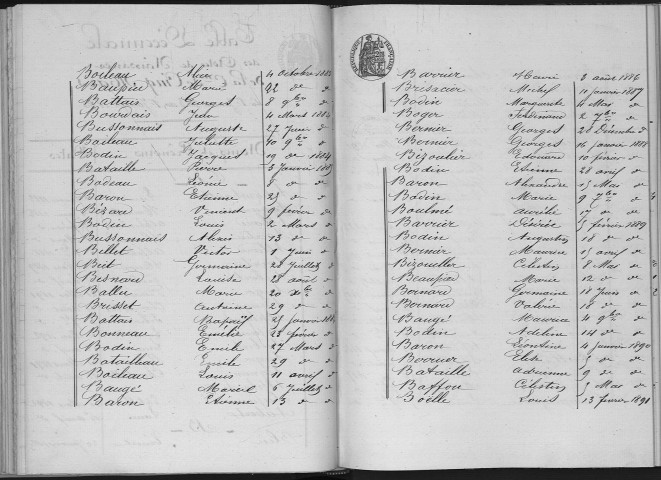 Boileau Alice 4 octobre 1883
Baupin Marie 22 de d
Battais Georges 8 9bre d
Bourdais Jules 4 Mars 1884
Bussonnais Auguste 27 Juin d
Boileau Juliette 10 9bre d
Bodin Jacques 19 de 1884
Bataille Pierre 3 Janvier 1885
Badeau Léonie 8 d d
Baron Etienne 25 d d
Bézard Vincent 9 février d
Bodin Louis 2 Mars d
Bussonnais Alexis 13 d d
Billet Victor 1 Juin d
Breit Germaine 28 Juillet d
Besnard Louise 28 août d
Ballu Marie 20 Xbre d
Brisset Antoine 29 d d
Battais 25 Janvier
Bonneau Emile 23 février d
Bodin Emile 27 Mars d
Batailleau Emile 29 d d
Boileau Louis 11 avril d
Baugé Marcel 6 Juillet d
Baron Etienne 13 d d
Barrier Henri 3 août 1886
Brisacier Michel 11 Janvier 1887
Bodin Marguerite 4 Mai d
Boger Ferdinand 2 7bre d
Bernier Georges 28 Décembre d
Bernier Georges 16 Janvier 1888
Bizoulier Edouard 10 février d
Bodin Etienne 28 avril d
Baron Alexandre 15 Mai d
Bodin Marie 9 7bre d
Boulmé Aurélie 17 d d
Barrier Désirée 5 février 1889
Bodin Augustin 18 d d
Bernier Maurice 15 avril d
Bizouillier Célestin 8 Mai d
Beaupin Marie 12 d d
Bernard Germaine 18 Juin d
Bernard Valérie 18 d d
Baugé Maurice 4 9bre d
Bodin Adeline 14 d d
Baron Léontine 4 Janvier 1890
Berruer Elise 5 d d
Bataille Adrienne 9 d d
Baffou Célestin 1 Mai d
Boëlle Louis 13 février 1891